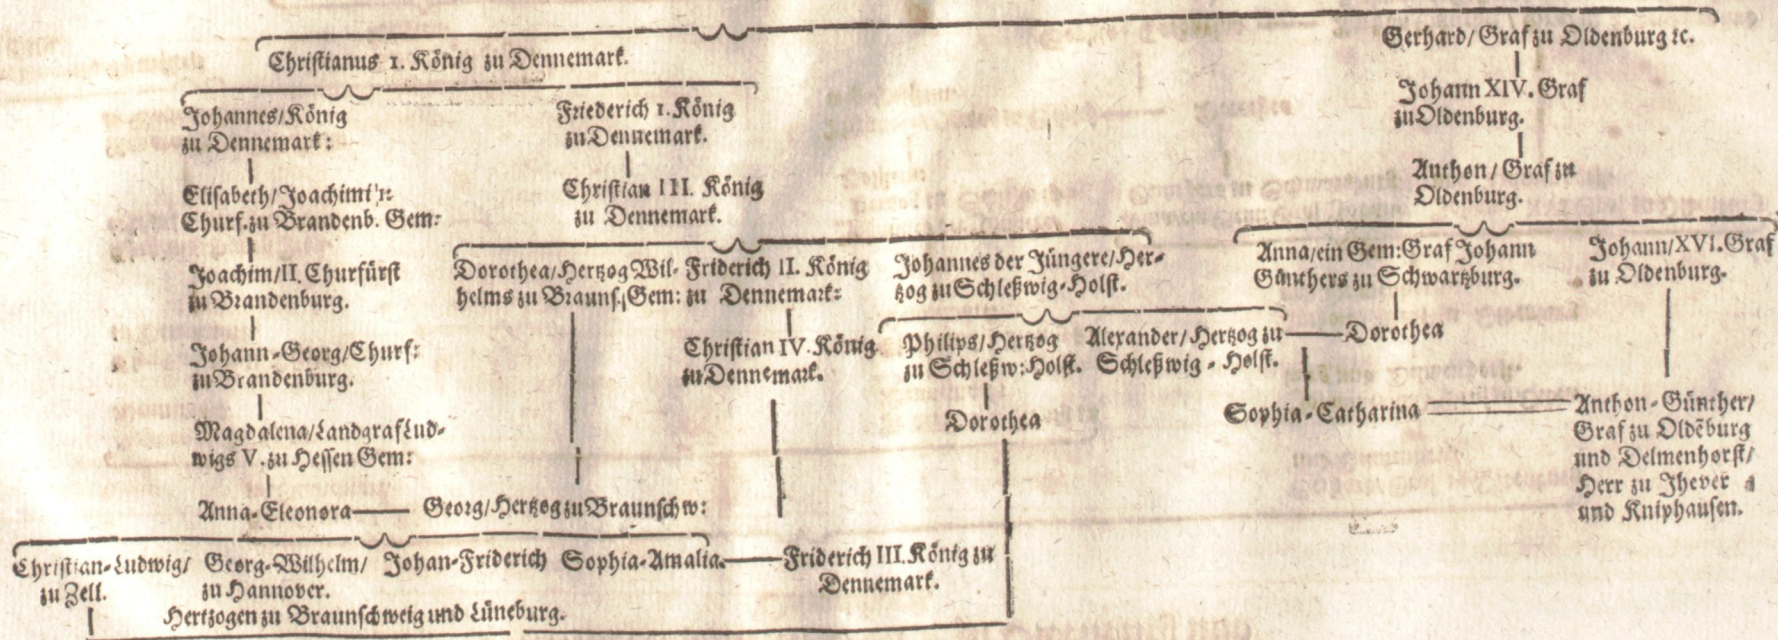 Christianus 1. König zu Dennemark.
Gerhard/ Graf zu Oldenburg ꝛc.
Johannes/König
zu Dennemark:
Friederich 1. König
zu Dennemark.
Johann XIV. Graf
zu Oldenburg.
Elisabeth/Joachimi 1:
Churf. zu Brandenb. Gem:
Christian III. König
zu Dennemark.
Anthon / Graf zu
Oldenburg.
Joachim/II. Churfürst
zu Brandenburg.
Dorothea/Hertzog Wil-
helms zu Brauns. Gem:
Friderich II. König
zu Dennemark:
Johannes der Jüngere/Her-
tzog zu Schleßwig-Holst.
Anna/ein Gem: Graf Johann
Günthers zu Schwartzburg.
Johann/XVI. Graf
zu Oldenburg.
Johann-Georg/Churf:
zu Brandenburg.
Christian IV. König
zu Dennemark.
Philips/Hertzog
zu Schleßw: Holst.
Alexander/Hertzog zu
Schleßwig-Holst.
Dorothea
Magdalena/Landgraf Lud-
wigs V. zu Hessen Gem:
Dorothea
Sophia-Catharina
Anthon-Günther/
Graf zu Oldēburg
und Delmenhorst/
Herr zu Jhever
und Kniphausen.
Anna-Eleonora
Georg/Hertzog zu Braunschw:
Christian-Ludwig/
zu Zell.
Georg-Wilhelm/
zu Hannover.
Johan-Friderich
Sophia-Amalia.
Friderich III. König zu
Dennemark.
Hertzogen zu Braunschweig und Lüneburg.